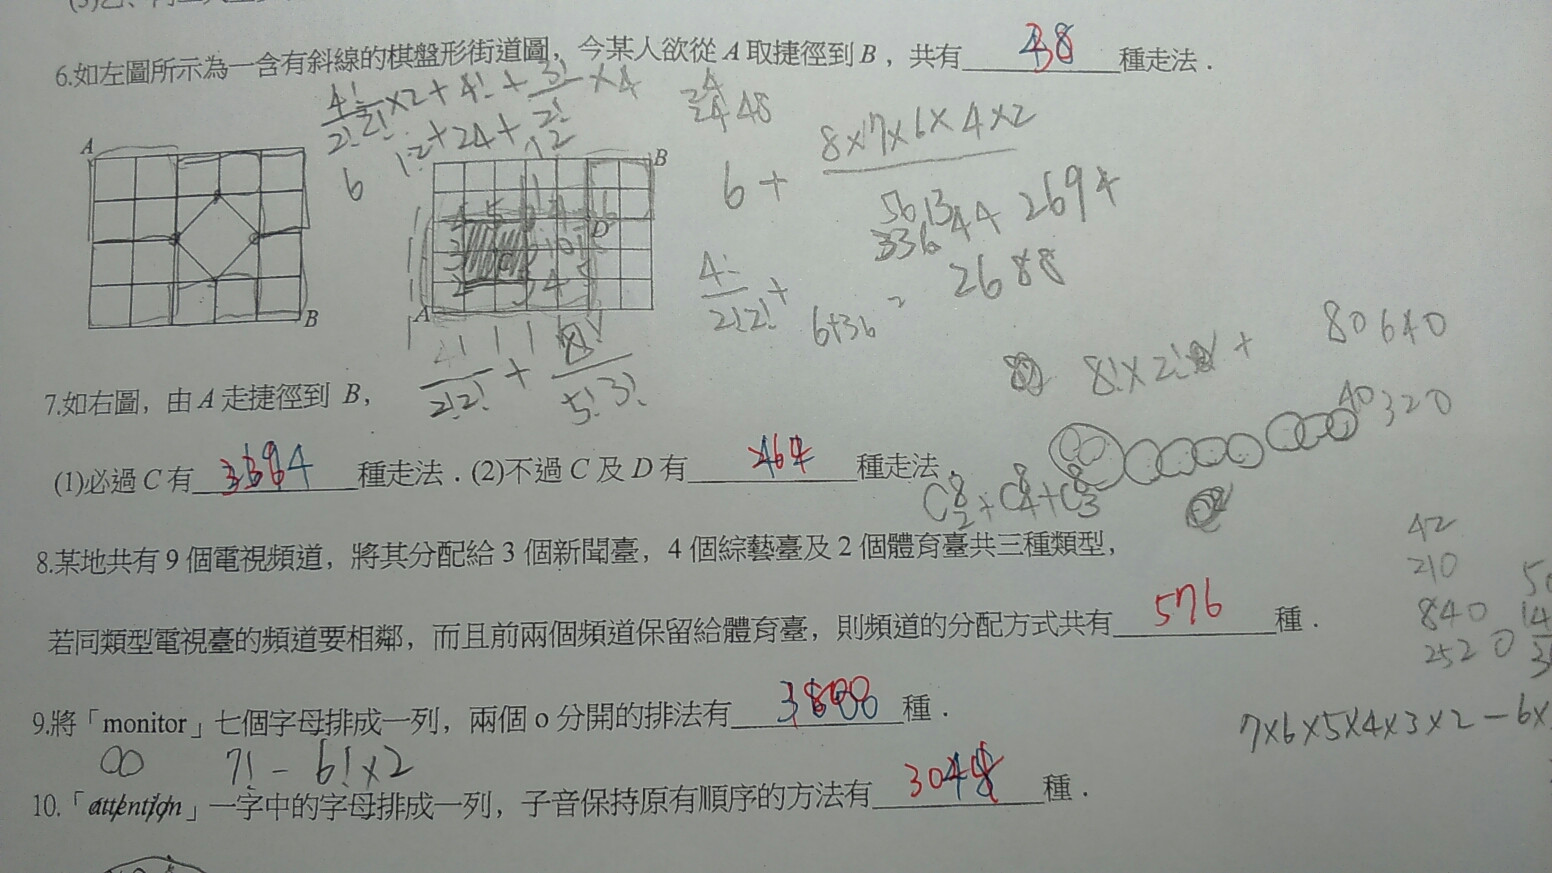 6.如左圖所示為一含有斜線的棋盤形街道圖，今某人欲從 A 取捷徑到 B，共有 38 種走法．
4!/2!2! ×2+4!+3!/2! ×4
6 12+24+12
24 48
8×7×6×4×2
6+
56 1344 2694
336
2688
A
B
B
D
A
4!/2!2! + 8!/5!3!
4!/2!2! +
8!×2! +
80640
40320
7.如右圖，由 A 走捷徑到 B，
(1)必過 C 有 種走法．(2)不過 C 及 D 有 種走法．
C⁸₂+C⁸₄+C⁸₃
8.某地共有 9 個電視頻道，將其分配給 3 個新聞臺，4 個綜藝臺及 2 個體育臺共三種類型，
若同類型電視臺的頻道要相鄰，而且前兩個頻道保留給體育臺，則頻道的分配方式共有 576 種．
42
210
840
2520
9.將「monitor」七個字母排成一列，兩個 o 分開的排法有 種．
7!－6!×2
7×6×5×4×3×2－6×
10.「attention」一字中的字母排成一列，子音保持原有順序的方法有 種．